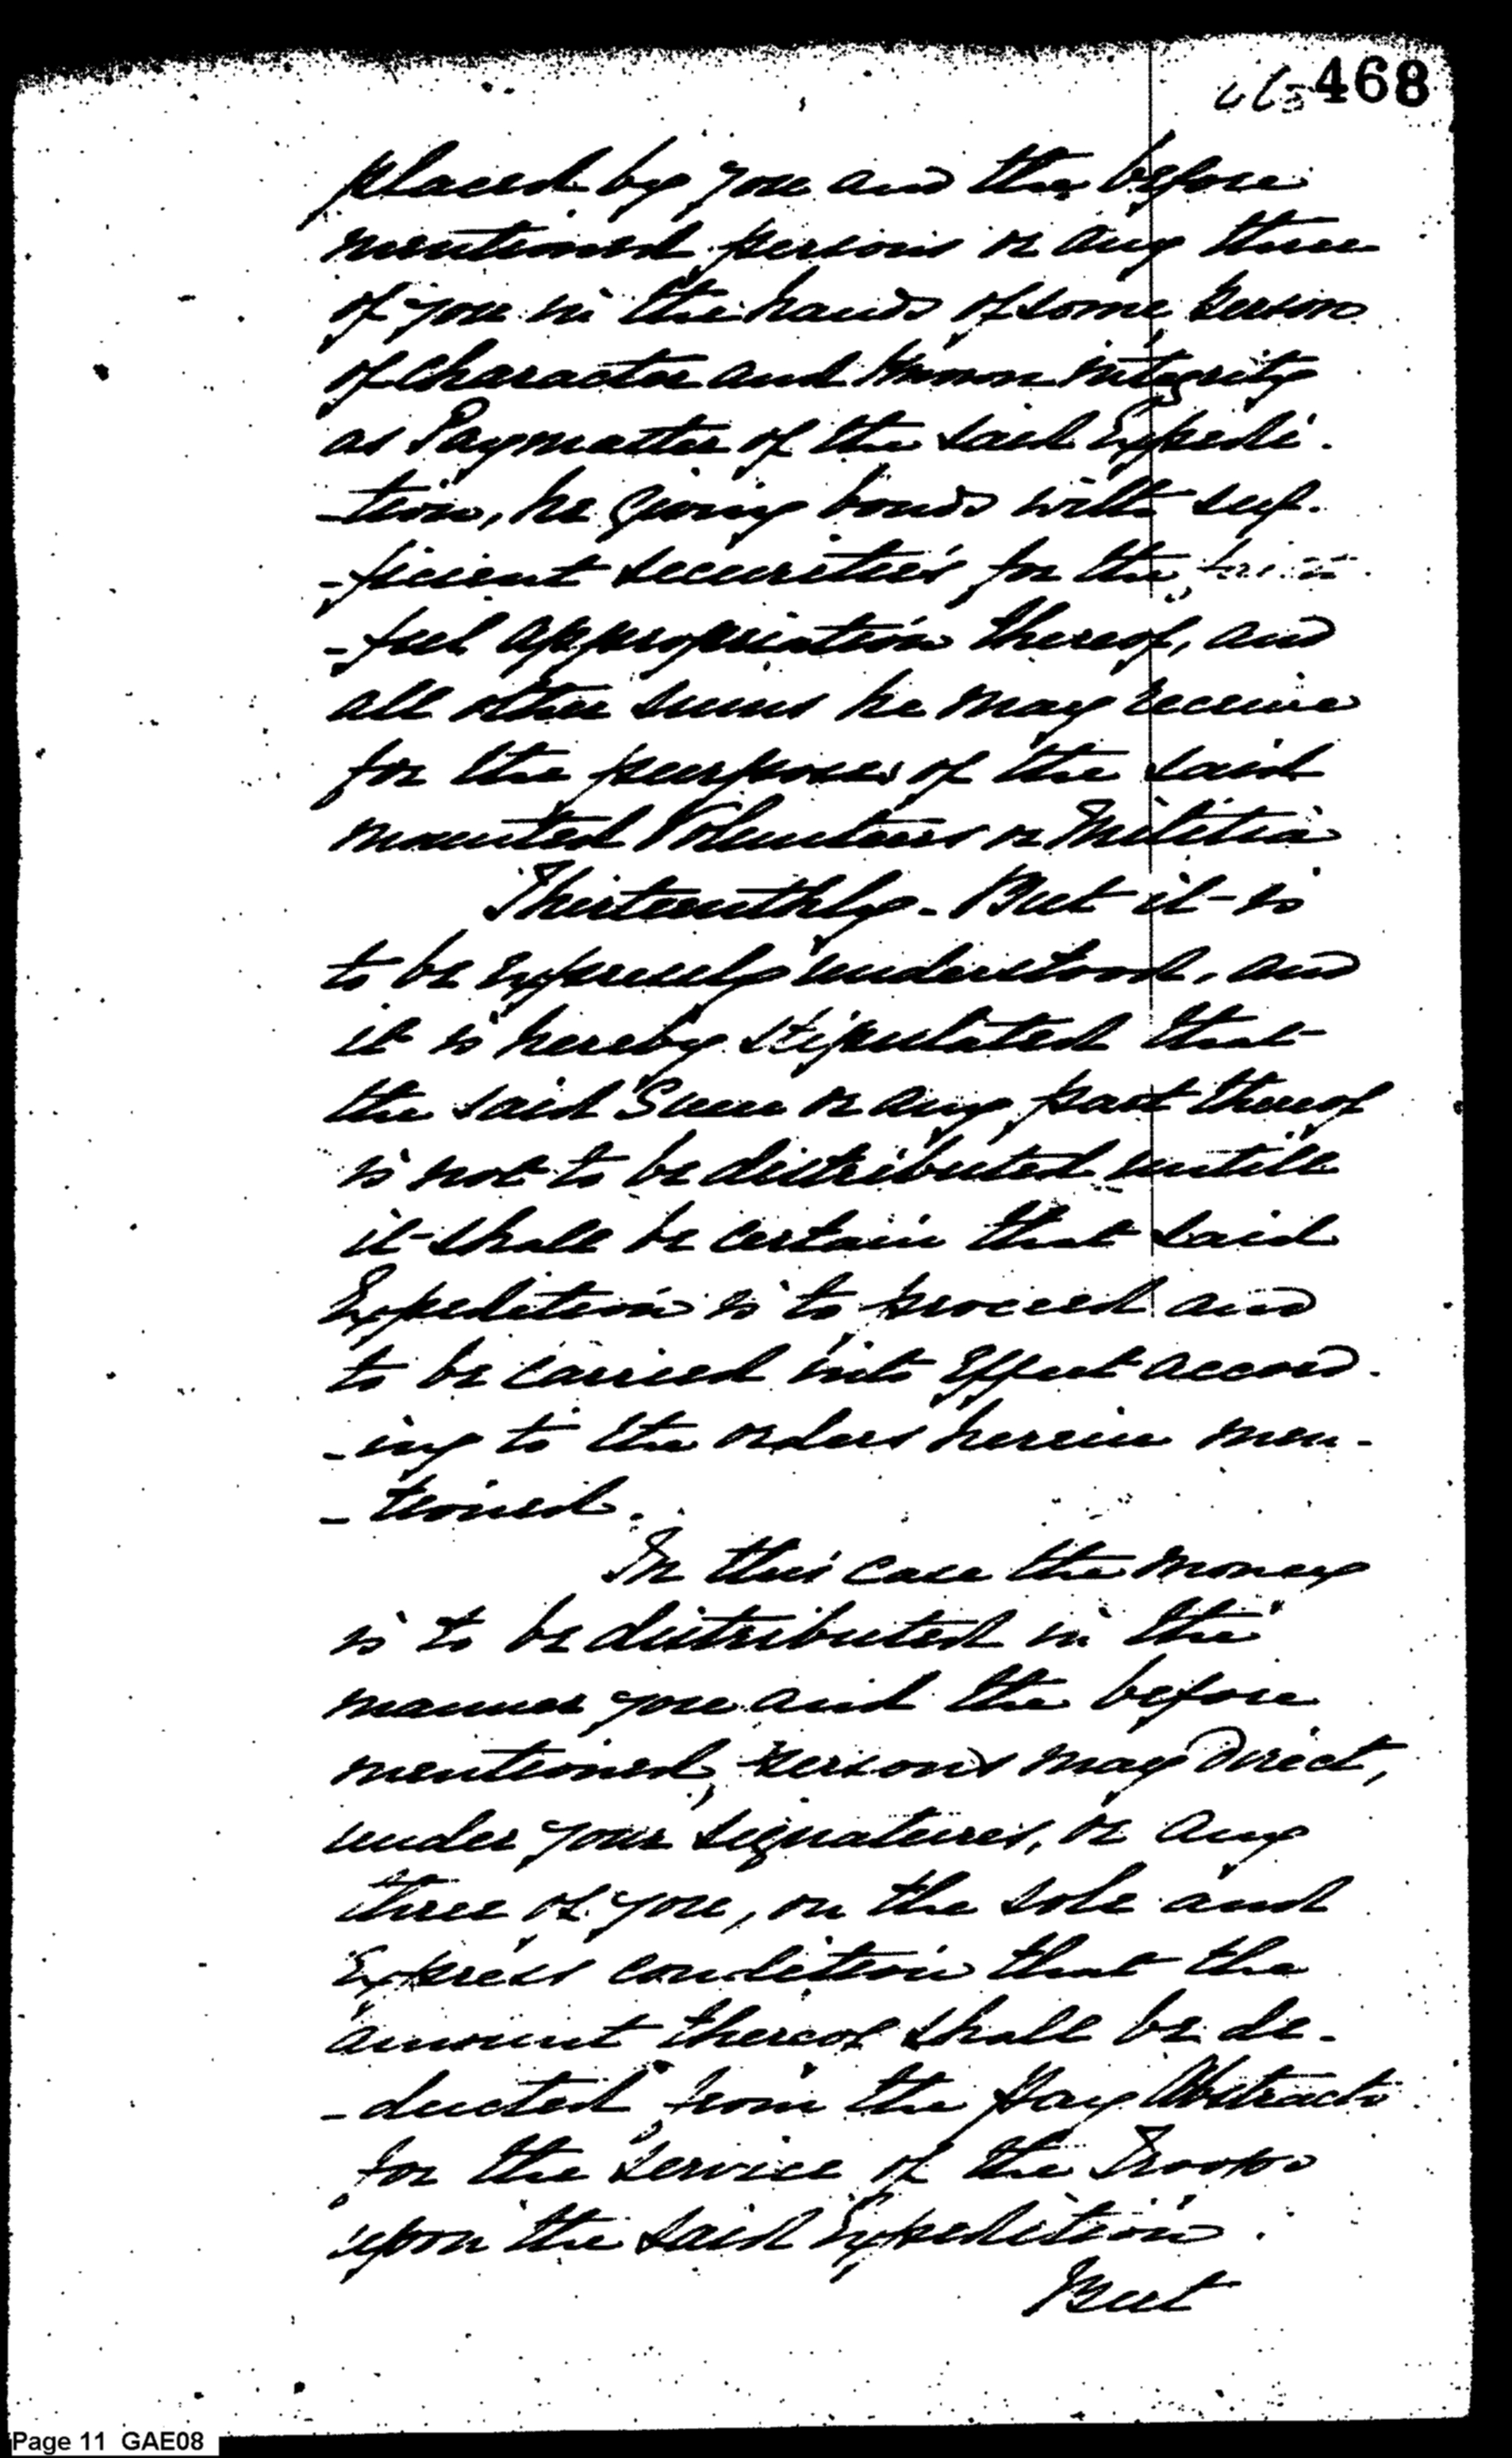 468
placed by you and the before
mentioned persons or any three
of you in the hands of some person
of Character and known integrity
as Paymaster of the said Expedi-
-tion, he giving bonds with suf-
-ficient securities for the
-ful appropriation thereof, and
all other sums he may receive
for the purposes of the said
mounted Volunteers or Militia
Thirteenthly - But it is
to be expressly understood, and
it is hereby stipulated that
the said Sum or any part thereof
is not to be distributed untill
it shall be certain that said
Expedition is to proceed and
to be carried into Effect accord-
-ing to the orders herein men-
-tioned.
In this case the money
is to be distributed in the
manner you and the before
mentioned persons may direct,
under your signatures, or any
three of you, on the sole and
Express condition that the
amount thereof shall be de-
-ducted from the Pay Abstracts
for the service of the Troops
upon the said Expedition.
But
Page 11 GAE08